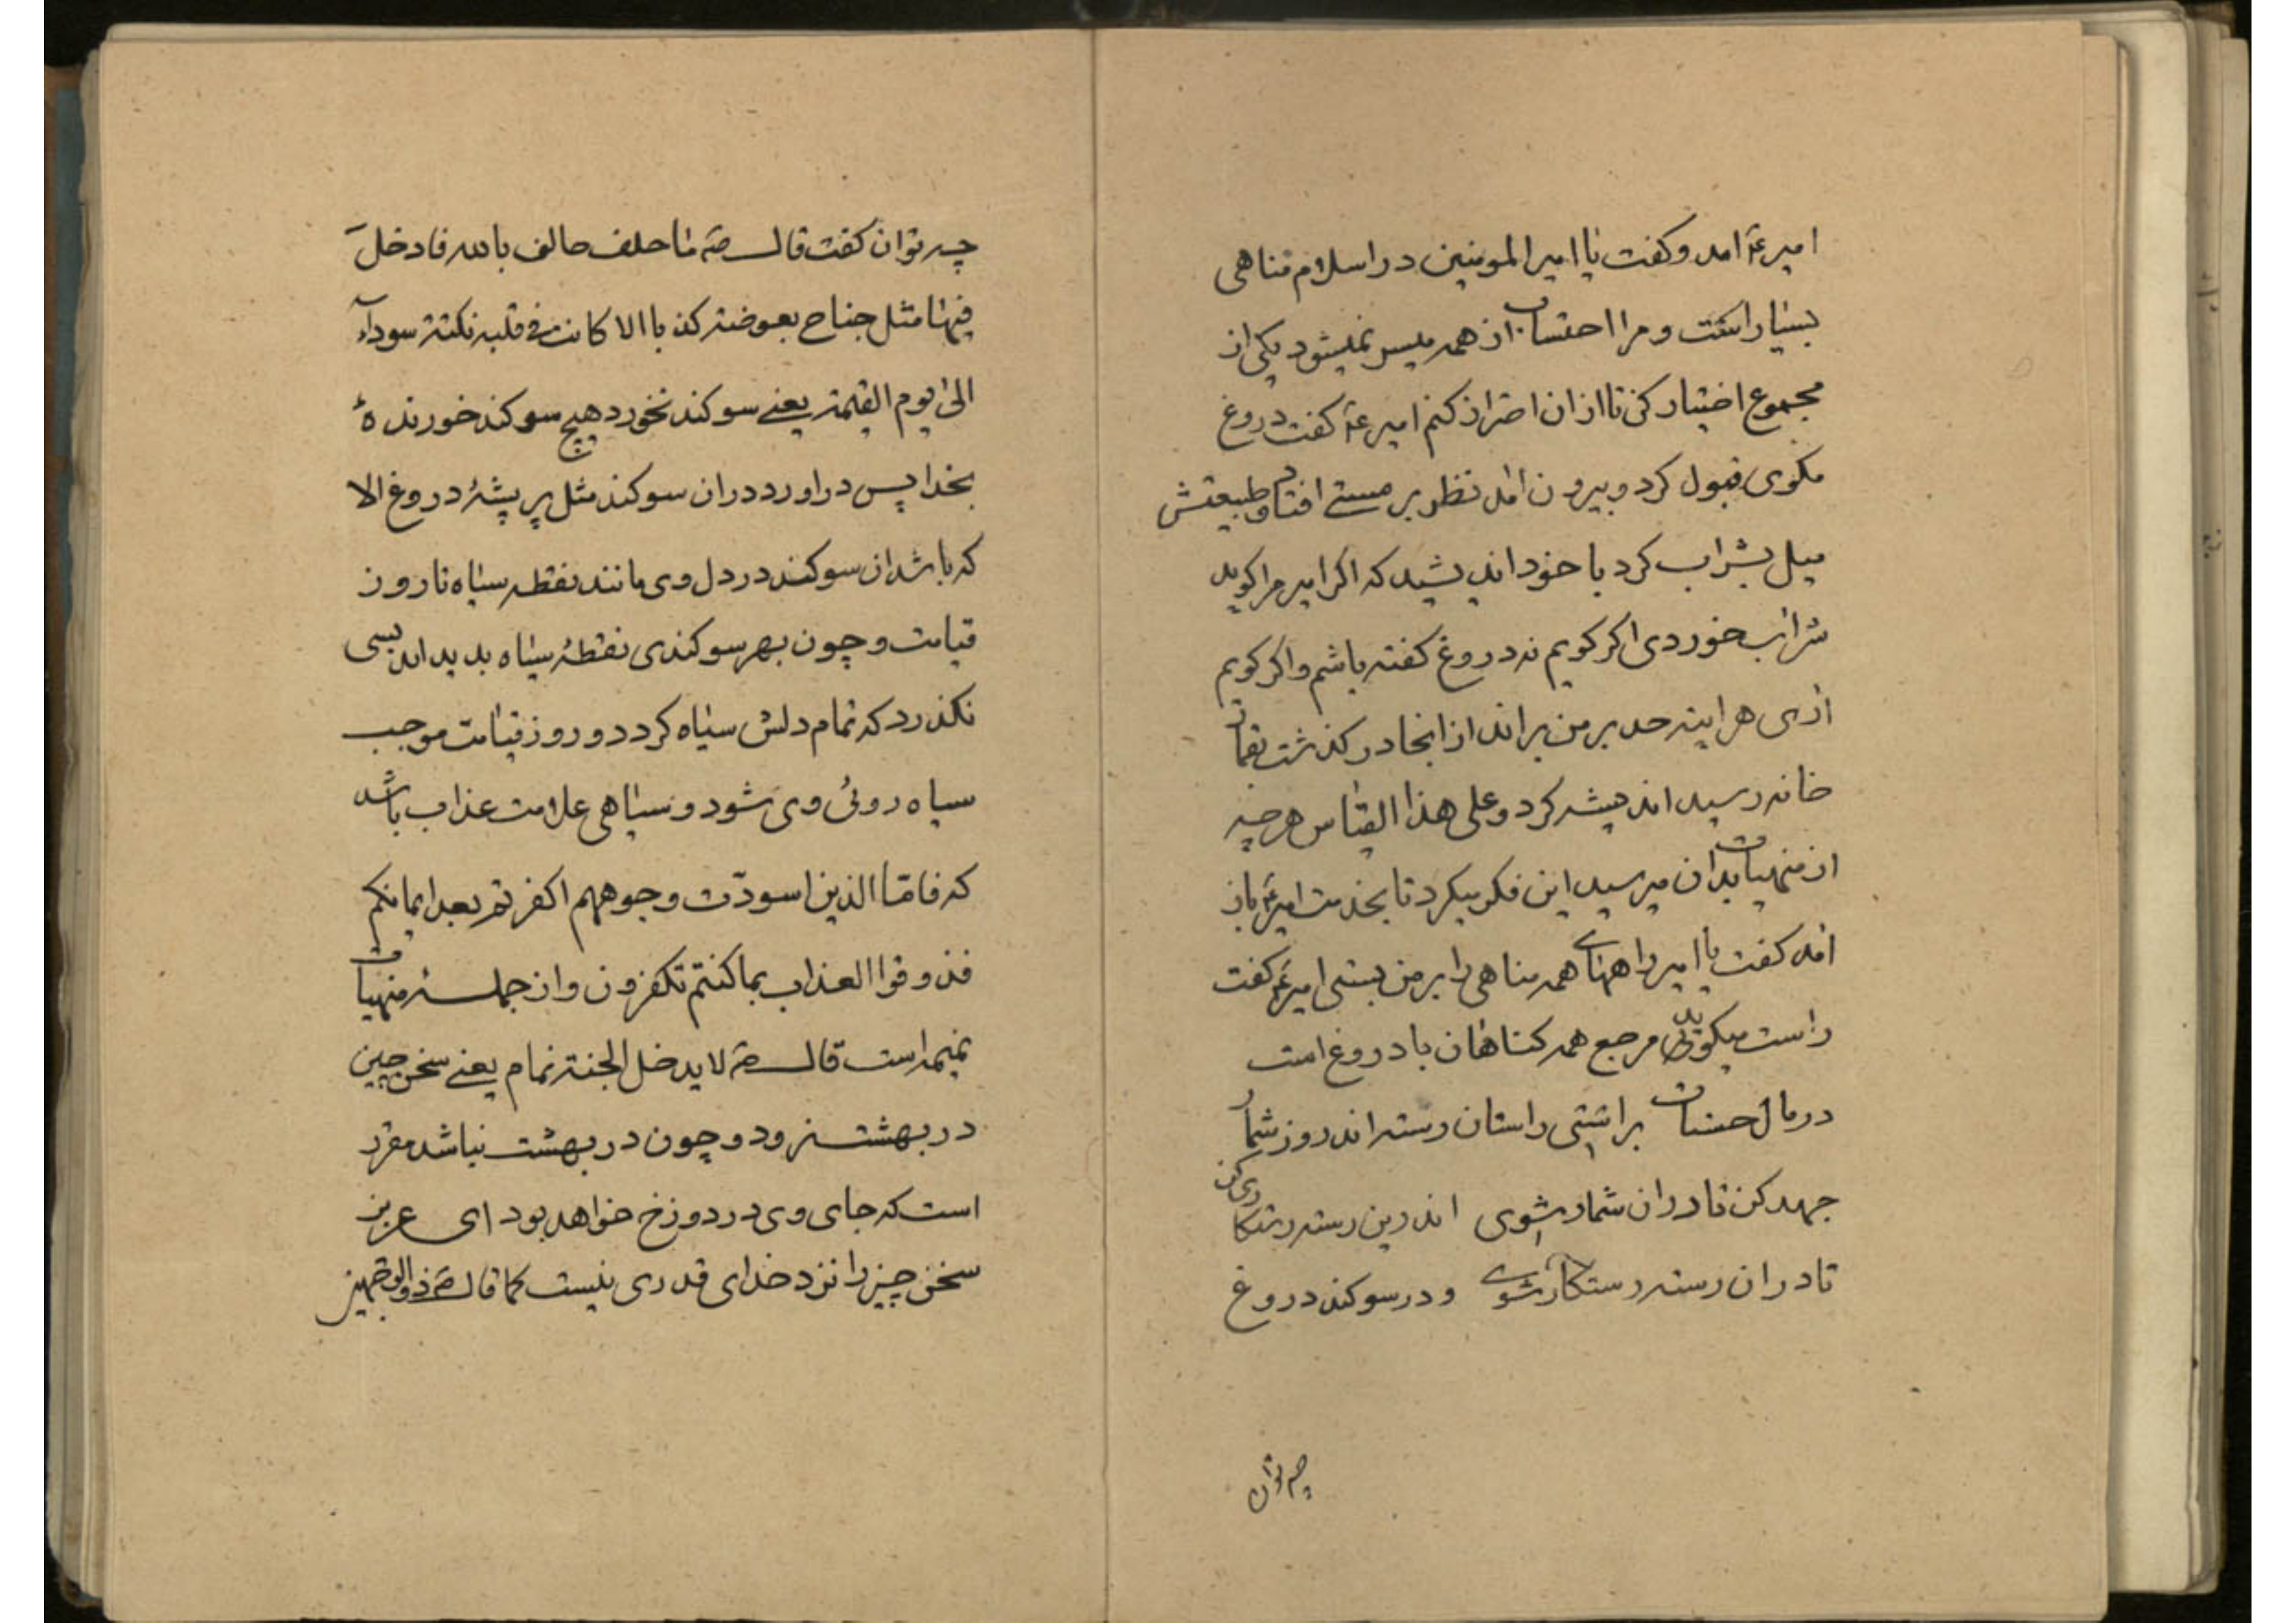 امیرعم امد وکفت یا امیرالمومنین در اسلام مناهی
بسیار است و مرا اجتناب از همه میسر نمیشود یکی از
مجموع اختیار کن تا ازان احتراز کنم امیرعم کفت دروغ
مکوی قبول کرد و بیرون امد نظر بر مستی افتاد و طبیعتش
میل بشراب کرد با خود اندیشید که اکر امیر مرا کوید
شراب خوردی اکر کویم نه دروغ کفته باشم و اکر کویم
اری هراینه حد بر من براند از انجا در کذشت بقمار
خانه رسید اندیشه کرد و علی هذا القیاس هرچه
از منهیات بدان میرسید این فکر میکرد تا بخدمت امیرعم باز
امد کفت یا امیر راههای همه مناهی را بر من بستی امیرعم کفت
راست میکوئی مرجع همه کناهان با دروغ است
در مال حسنات براستی راستان رسته اند روز شمار
جهد کن تا دران شمار شوی اندرین رسته رستکاری کن
تا دران رسته رستکار شوی و در سوکند دروغ
چه توان
چه توان کفت قال صم ما حلف حالف بالله فادخل
فیها مثل جناح بعوضة کذبا الا کانت فی قلبه نکتة سودآء
الی یوم القیمة یعنی سوکند نخورد هیچ سوکند خورندهٔ
بخدا پس دراورد دران سوکند مثل پر پشهٔ دروغ الا
که باشد ان سوکند در دل وی مانند نقطه سیاه تا روز
قیامت و چون بهر سوکندی نقطهٔ سیاه بدید اید بسی
نکذرد که تمام دلش سیاه کردد و روز قیامت موجب
سیاه روئی وی شود و سیاهی علامت عذاب باشد
که فامّا الذین اسودّت وجوههم اکفرتم بعد ایمانکم
فذوقوا العذاب بما کنتم تکفرون و از جملهٔ منهیات
نمیمه است قال صم لا یدخل الجنة نمام یعنی سخن چین
در بهشت نرود و چون در بهشت نباشد مقرر
است که جای وی در دوزخ خواهد بود ای عزیز
سخن چین را نزد خدای قدری نیست کما قال صم ذو الوجهین